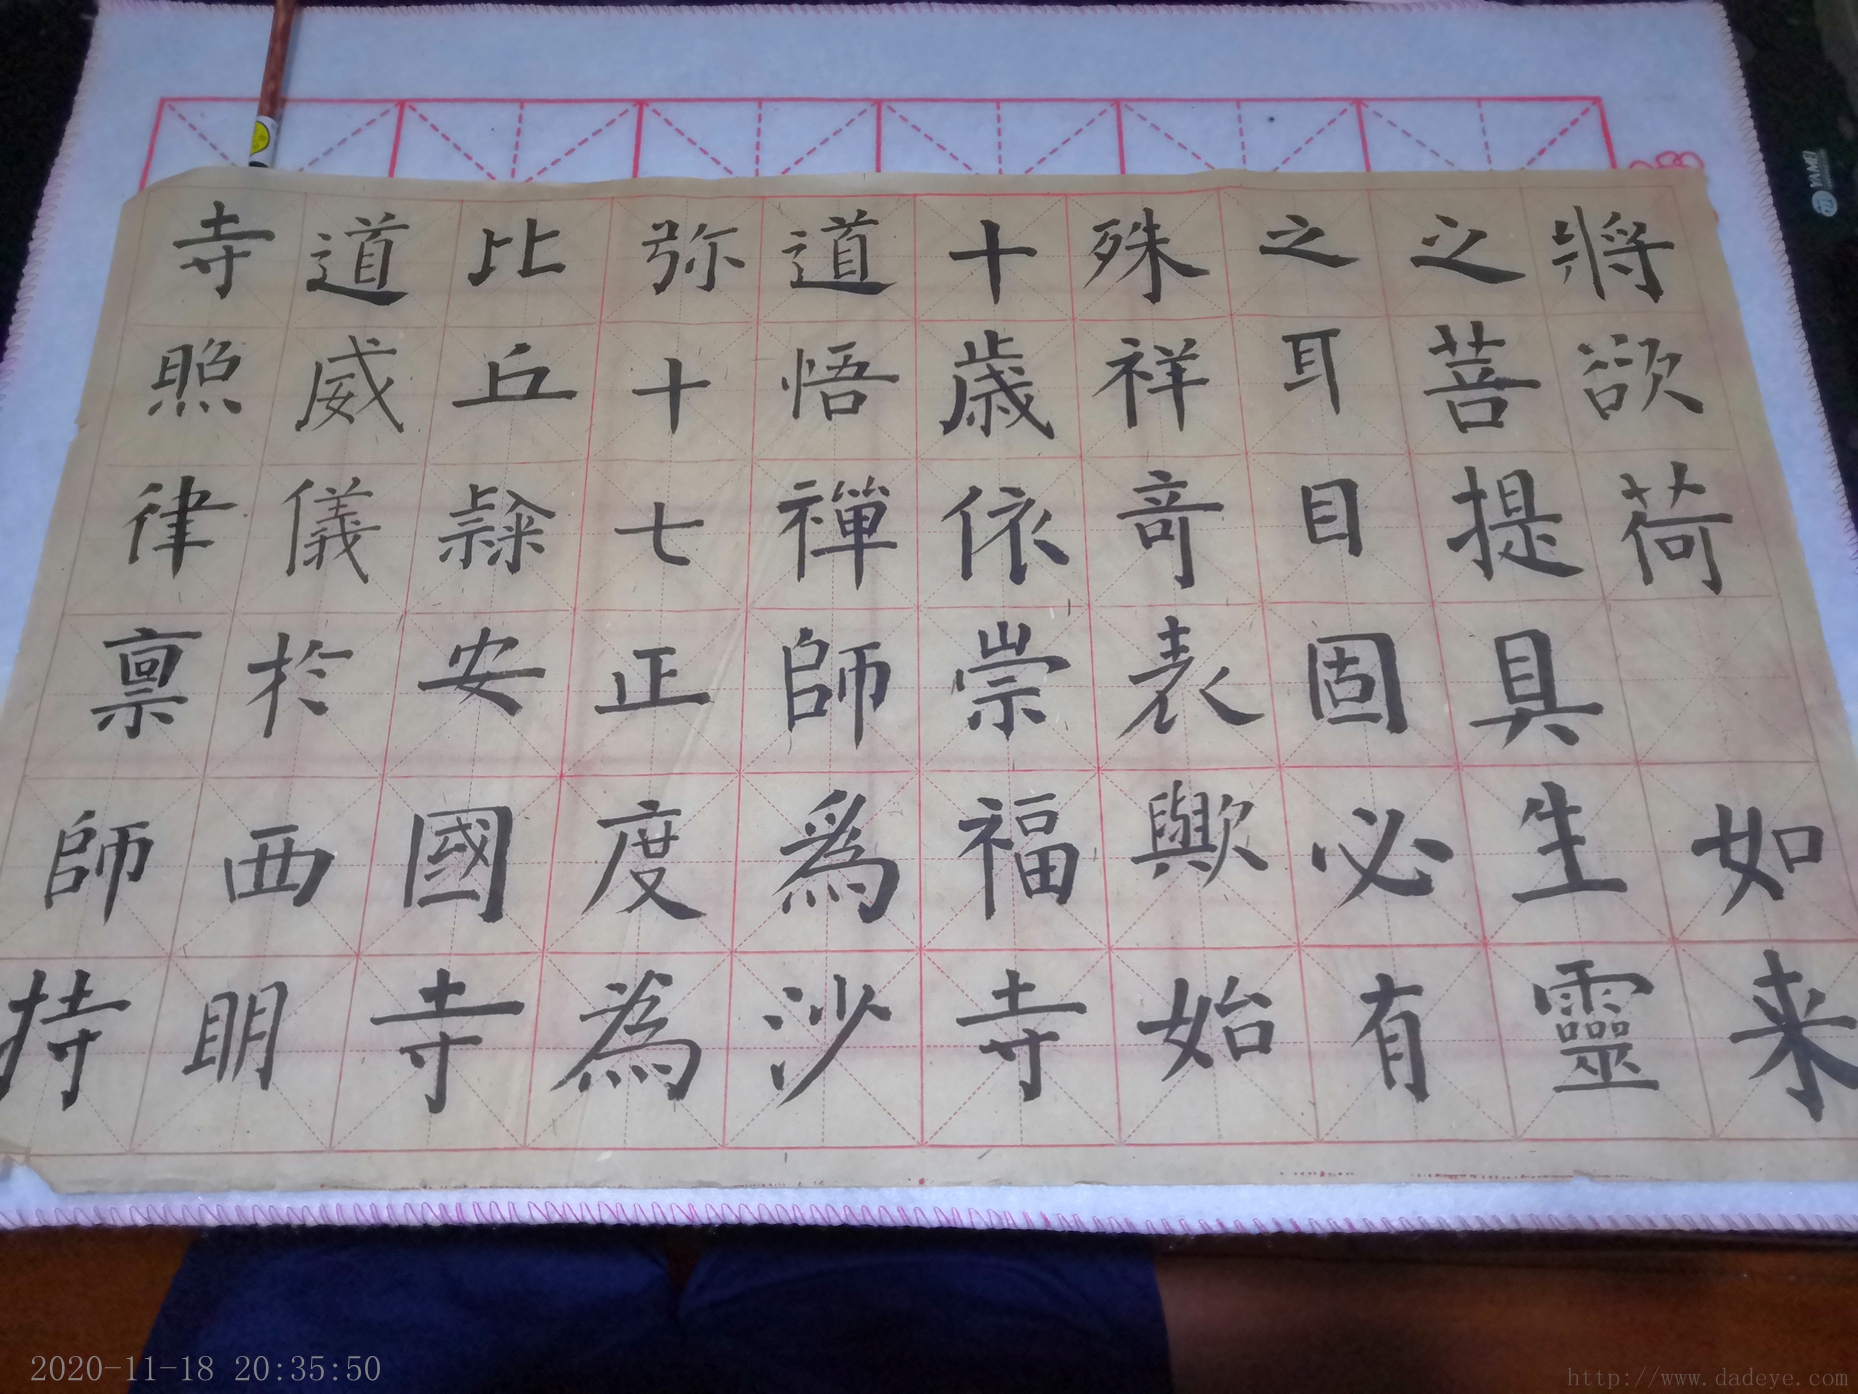 將欲荷 如来
之菩提具生靈
之耳目固必有
殊祥竒表歟始
十歳依崇福寺
道悟禪師爲沙
弥十七正度為
比丘隸安國寺
道威儀於西明
寺照律禀師持
YAMEI
2020-11-18 20:35:50
http://www.dadeye.com